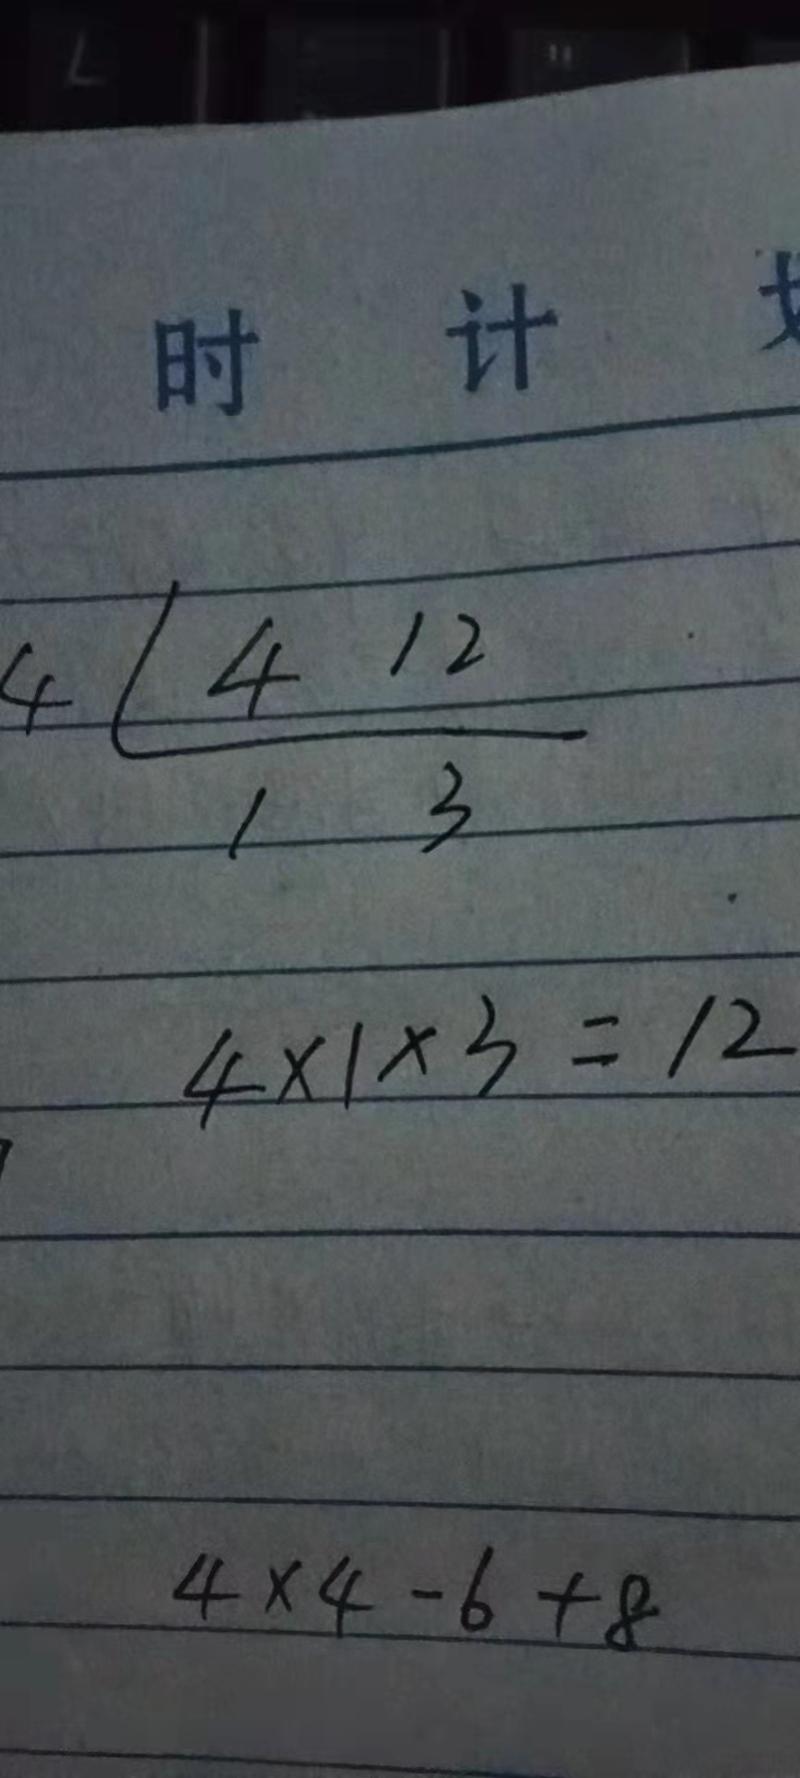 时 计
4 4 12
1 3
4×1×3=12
4×4-6+8